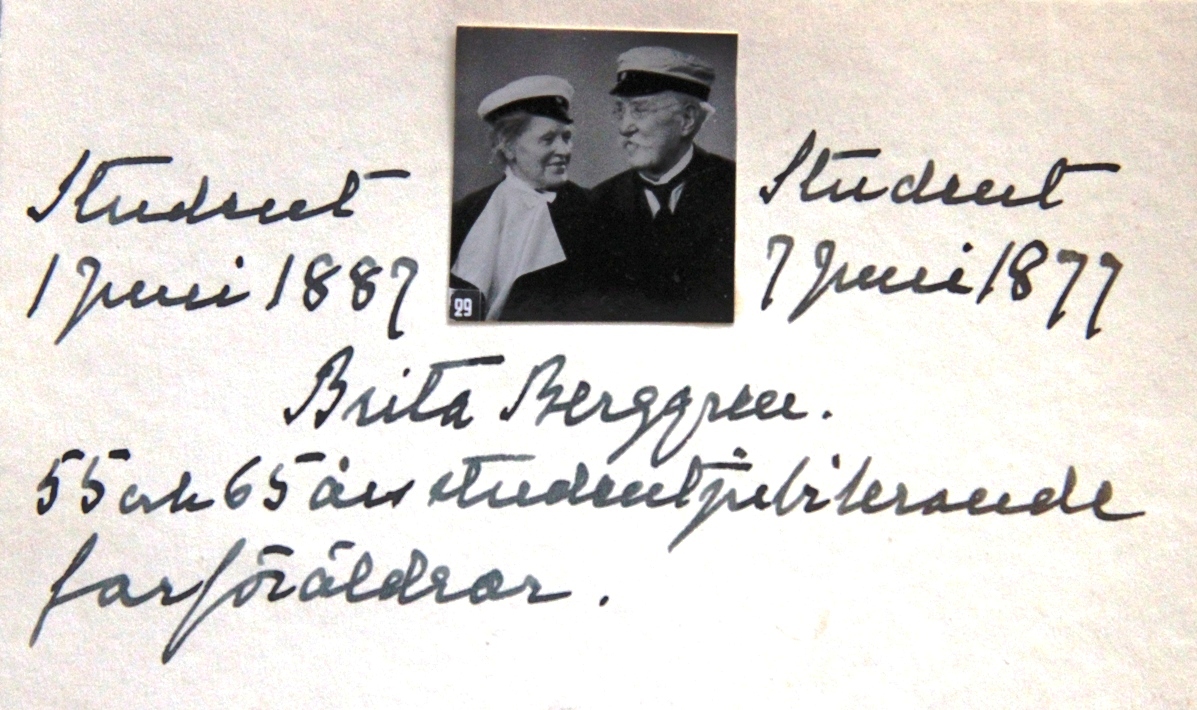 Student
1 Juni 1887
29
Student
7 Juni 1877
Brita Berggren.
55 och 65 års studentjubilerande
farföräldrar.